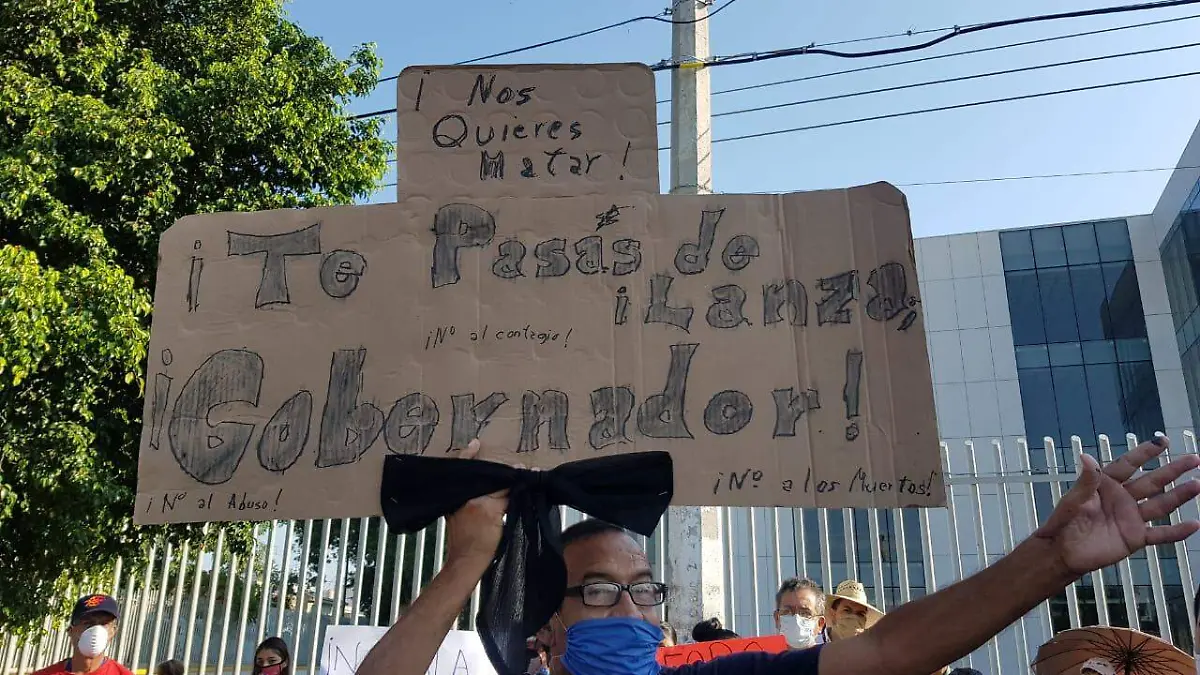 ¡ Nos
Quieres
Matar !
¡ Te Pasas de
¡ Lanza,
¡Nº al contagio!
¡Gobernador!
¡Nº al Abuso!
¡Nº a los Muertos!